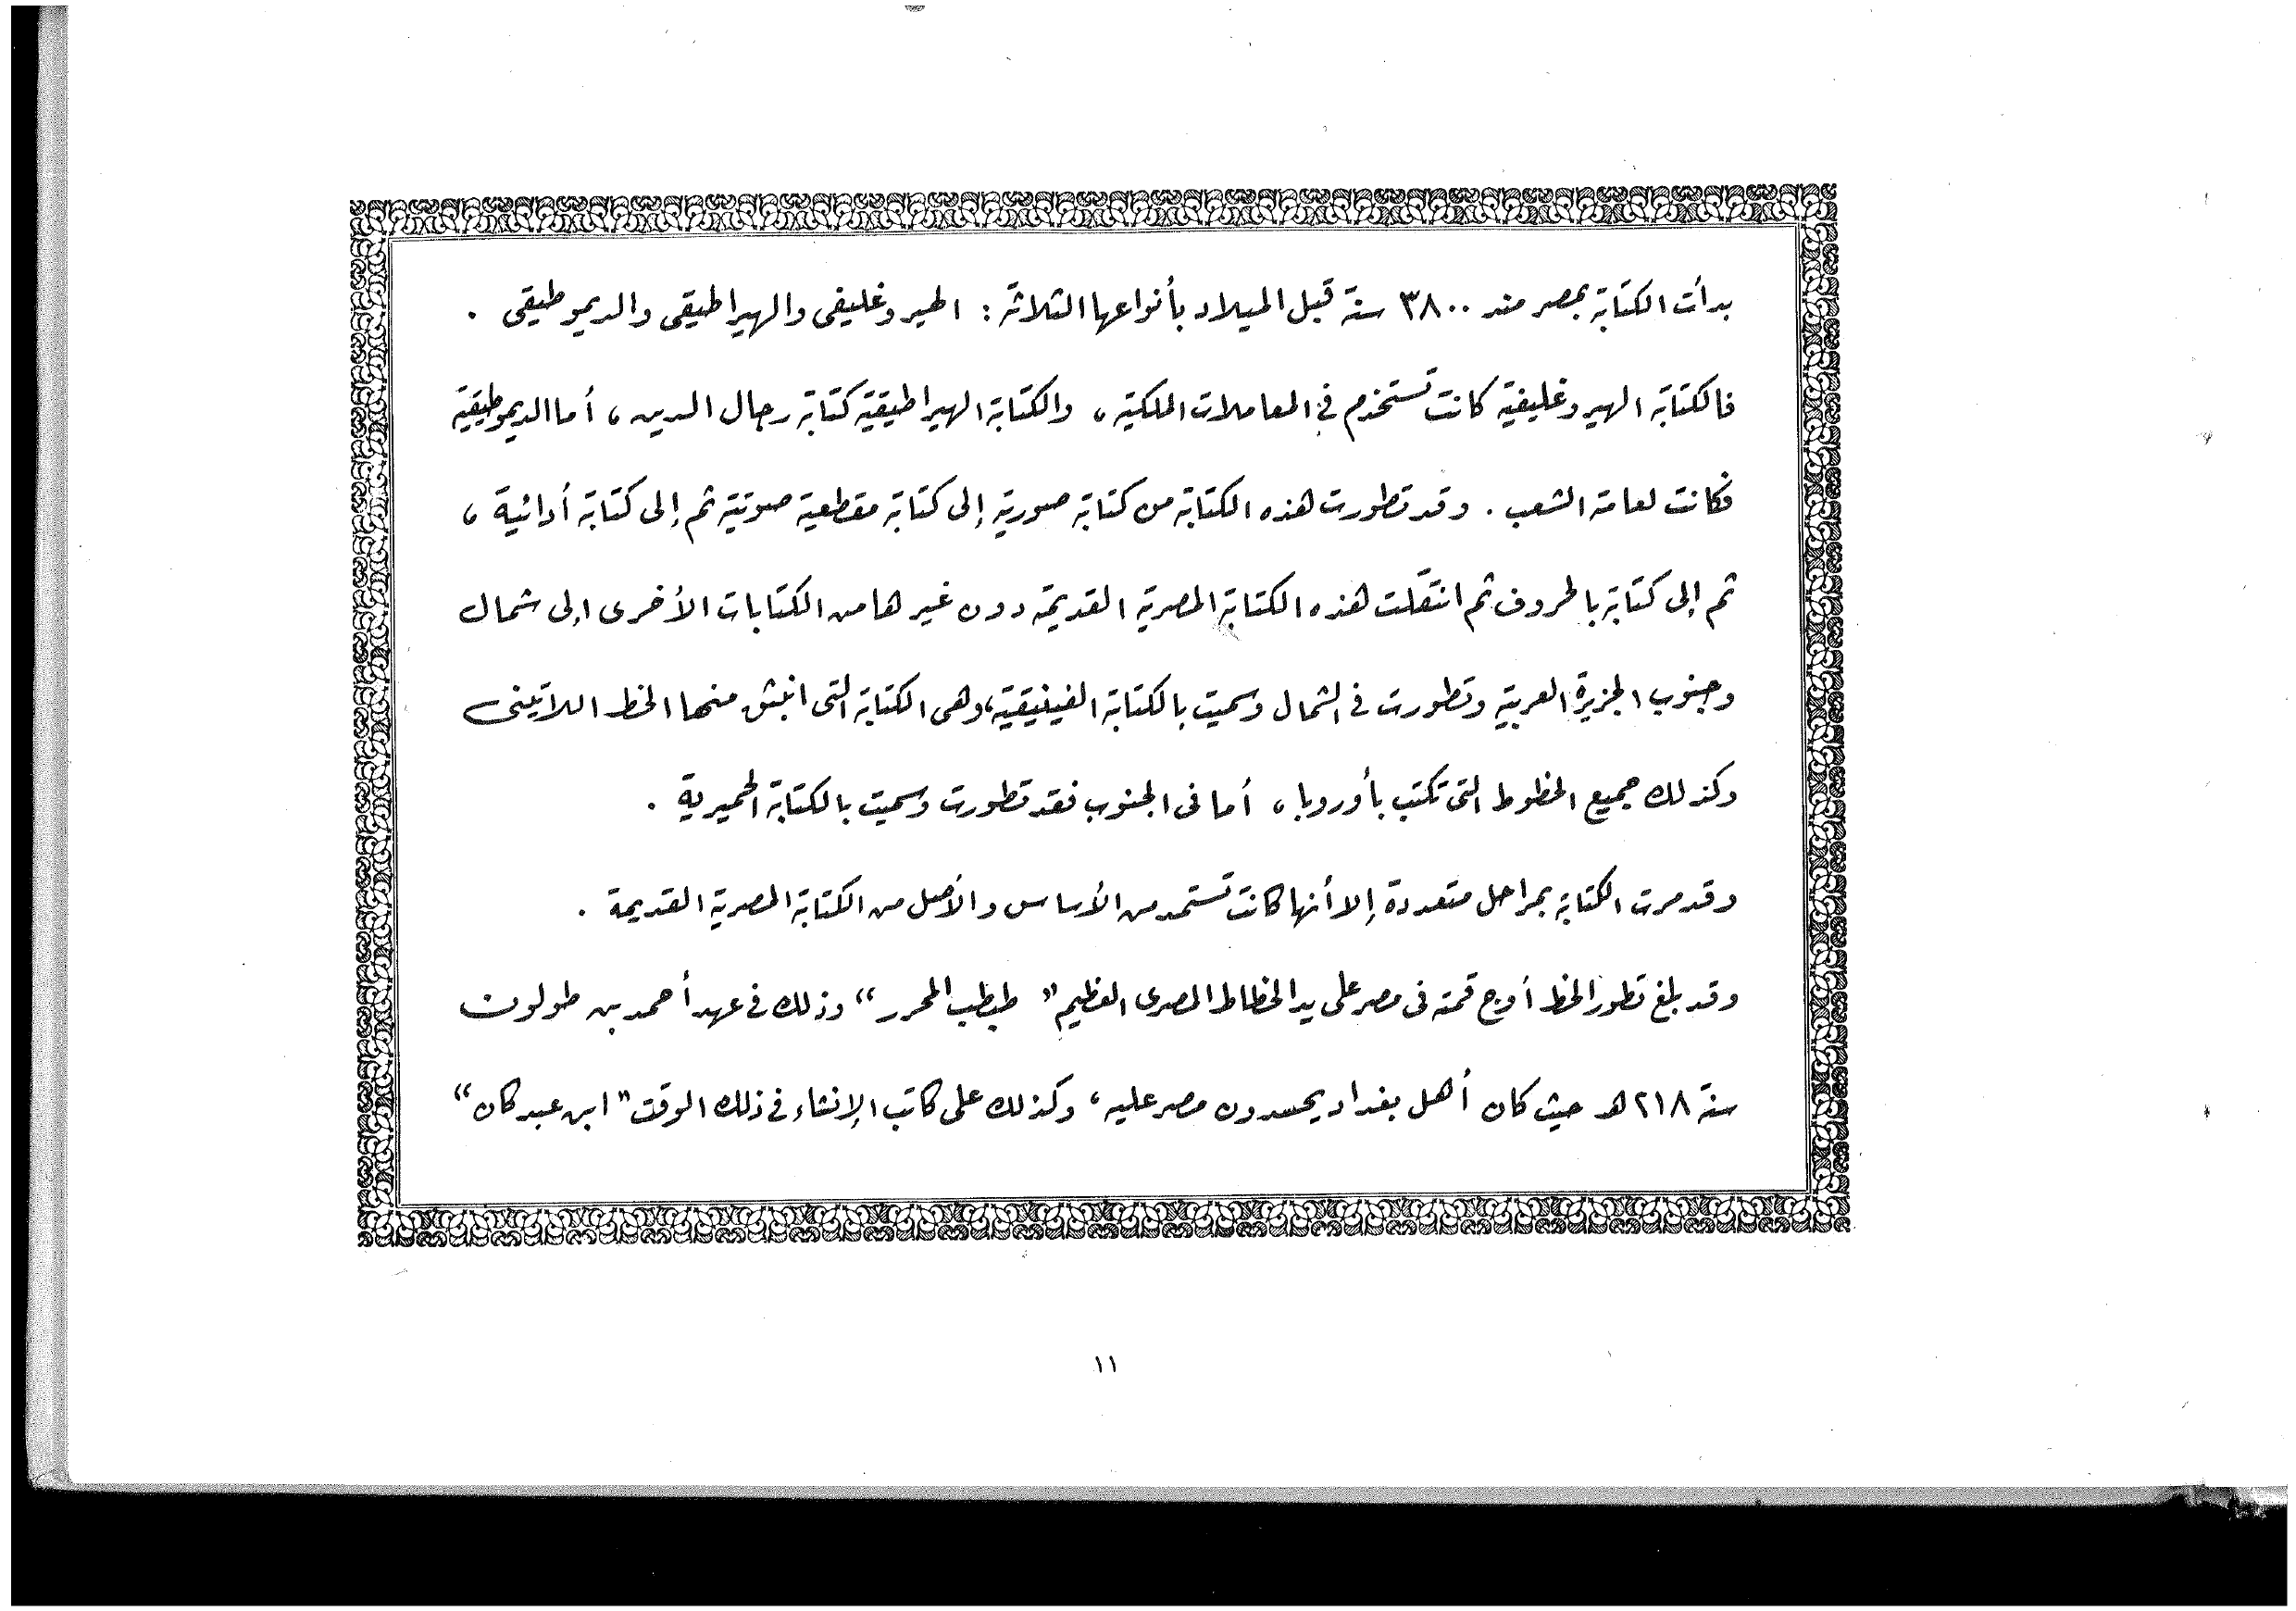 بدأت الكتابة بمصر منذ ٣٨٠٠ سنة قبل الميلاد بأنواعها الثلاثة : الهيروغليفى والهيراطيقى والديموطيقى .
فالكتابة الهيروغليفية كانت تستخدم فى المعاملات الملكية ، والكتابة الهيراطيقية كتابة رجال الدين ، أما الديموطيقية
فكانت لعامة الشعب . وقد تطورت هذه الكتابة من كتابة صورية إلى كتابة مقطعية صوتية ثم إلى كتابة أدائية ،
ثم إلى كتابة بالحروف ثم انتقلت هذه الكتابة المصرية القديمة دون غيرها من الكتابات الأخرى إلى شمال
وجنوب الجزيرة العربية وتطورت فى الشمال وسميت بالكتابة الفينيقية، وهى الكتابة التى انبثق منها الخط اللاتينى
وكذلك جميع الخطوط التى تكتب بأوروبا ، أما فى الجنوب فقد تطورت وسميت بالكتابة الحميرية .
وقد مرت الكتابة بمراحل متعددة إلا أنها كانت تستمد من الأساس والأصل من الكتابة المصرية القديمة .
وقد بلغ تطور الخط أوج قمته فى مصر على يد الخطاط المصرى العظيم " طبطب المحرر " وذلك فى عهد أحمد بن طولون
سنة ٢١٨ هـ حيث كان أهل بغداد يحسدون مصر عليه ، وكذلك على كاتب الإنشاء فى ذلك الوقت " ابن عبد كان "
١١